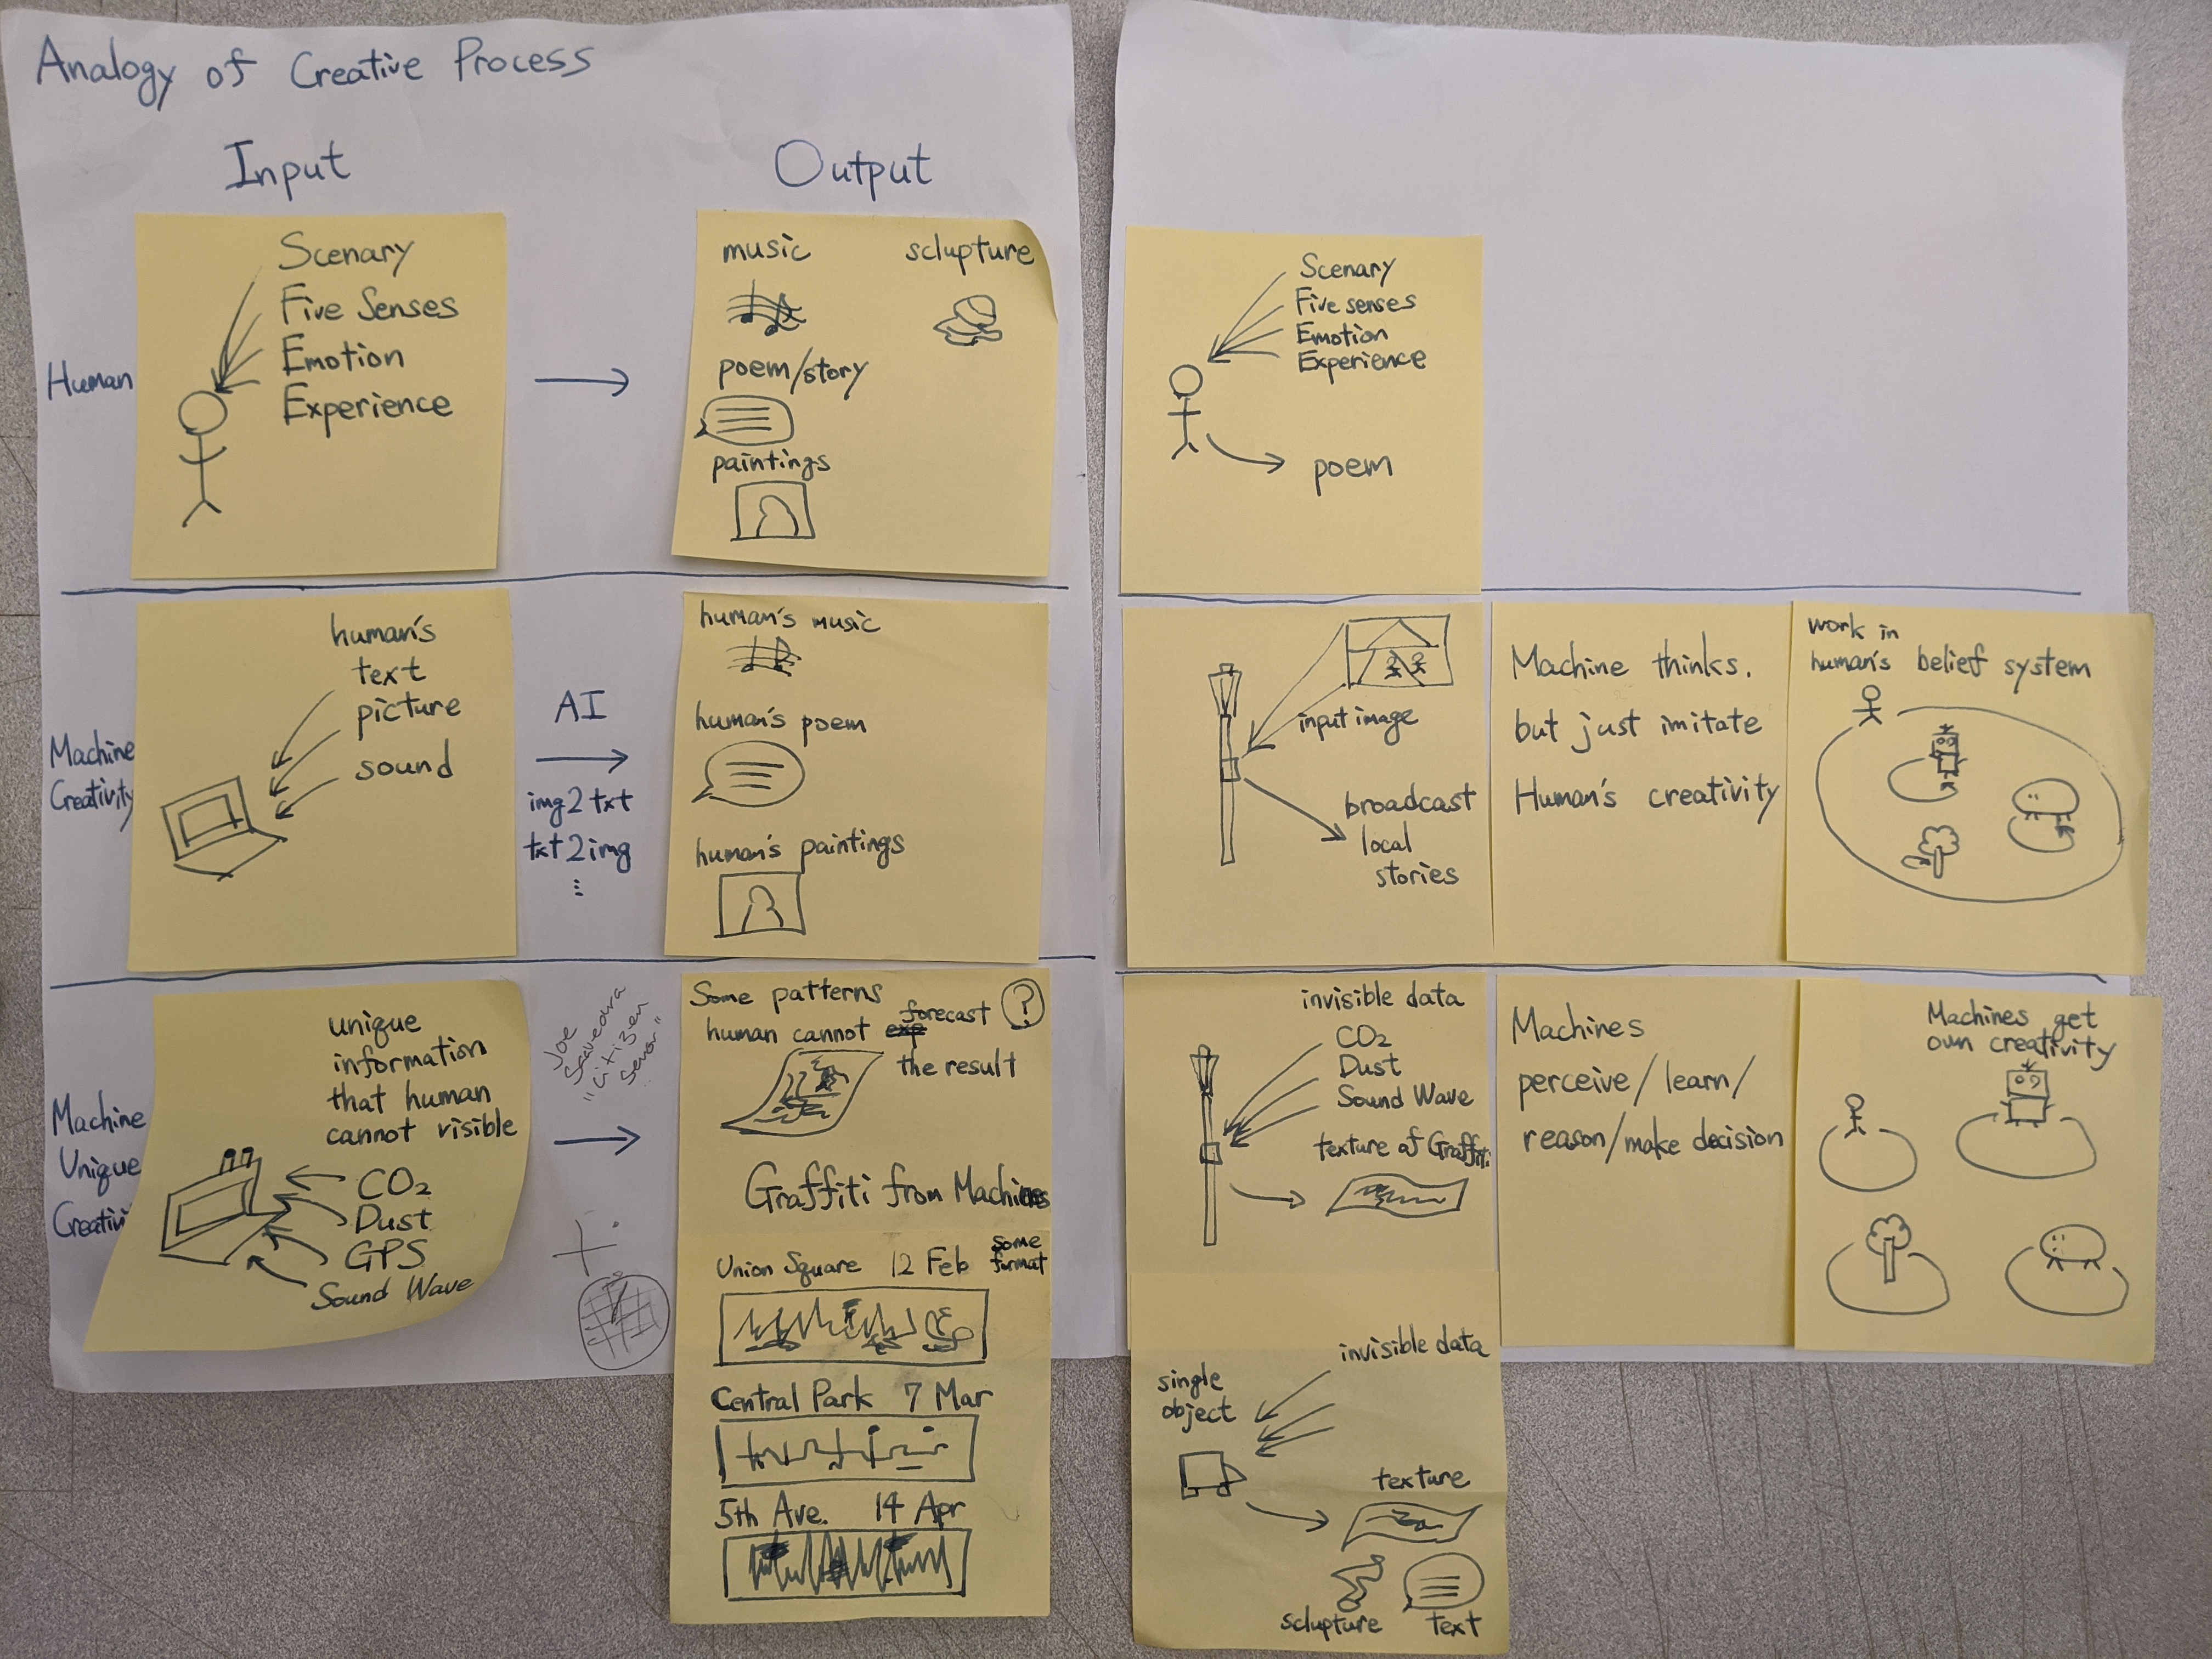 Analogy of Creative Process
Input
Output
Human
Scenary
Five Senses
Emotion
Experience
music
sclupture
poem/story
paintings
Scenary
Five senses
Emotion
Experience
poem
Machine
Creativity
human's
text
picture
sound
AI
img2txt
txt2img
...
human's music
human's poem
human's paintings
input image
broadcast
local
stories
Machine thinks.
but just imitate
Human's creativity
work in
human's belief system
Machine
Unique
unique
information
that human
cannot visible
CO2
Dust
GPS
Sound Wave
Joe
"Citizen
Some patterns
human cannot forecast ?
the result
Graffiti from Machines
Union Square 12 Feb
some
format
Central Park 7 Mar
5th Ave. 14 Apr
invisible data
CO2
Dust
Sound Wave
texture of Graffiti
Machines
perceive/learn/
reason/make decision
Machines get
own creativity
invisible data
single
object
texture
sclupture
text